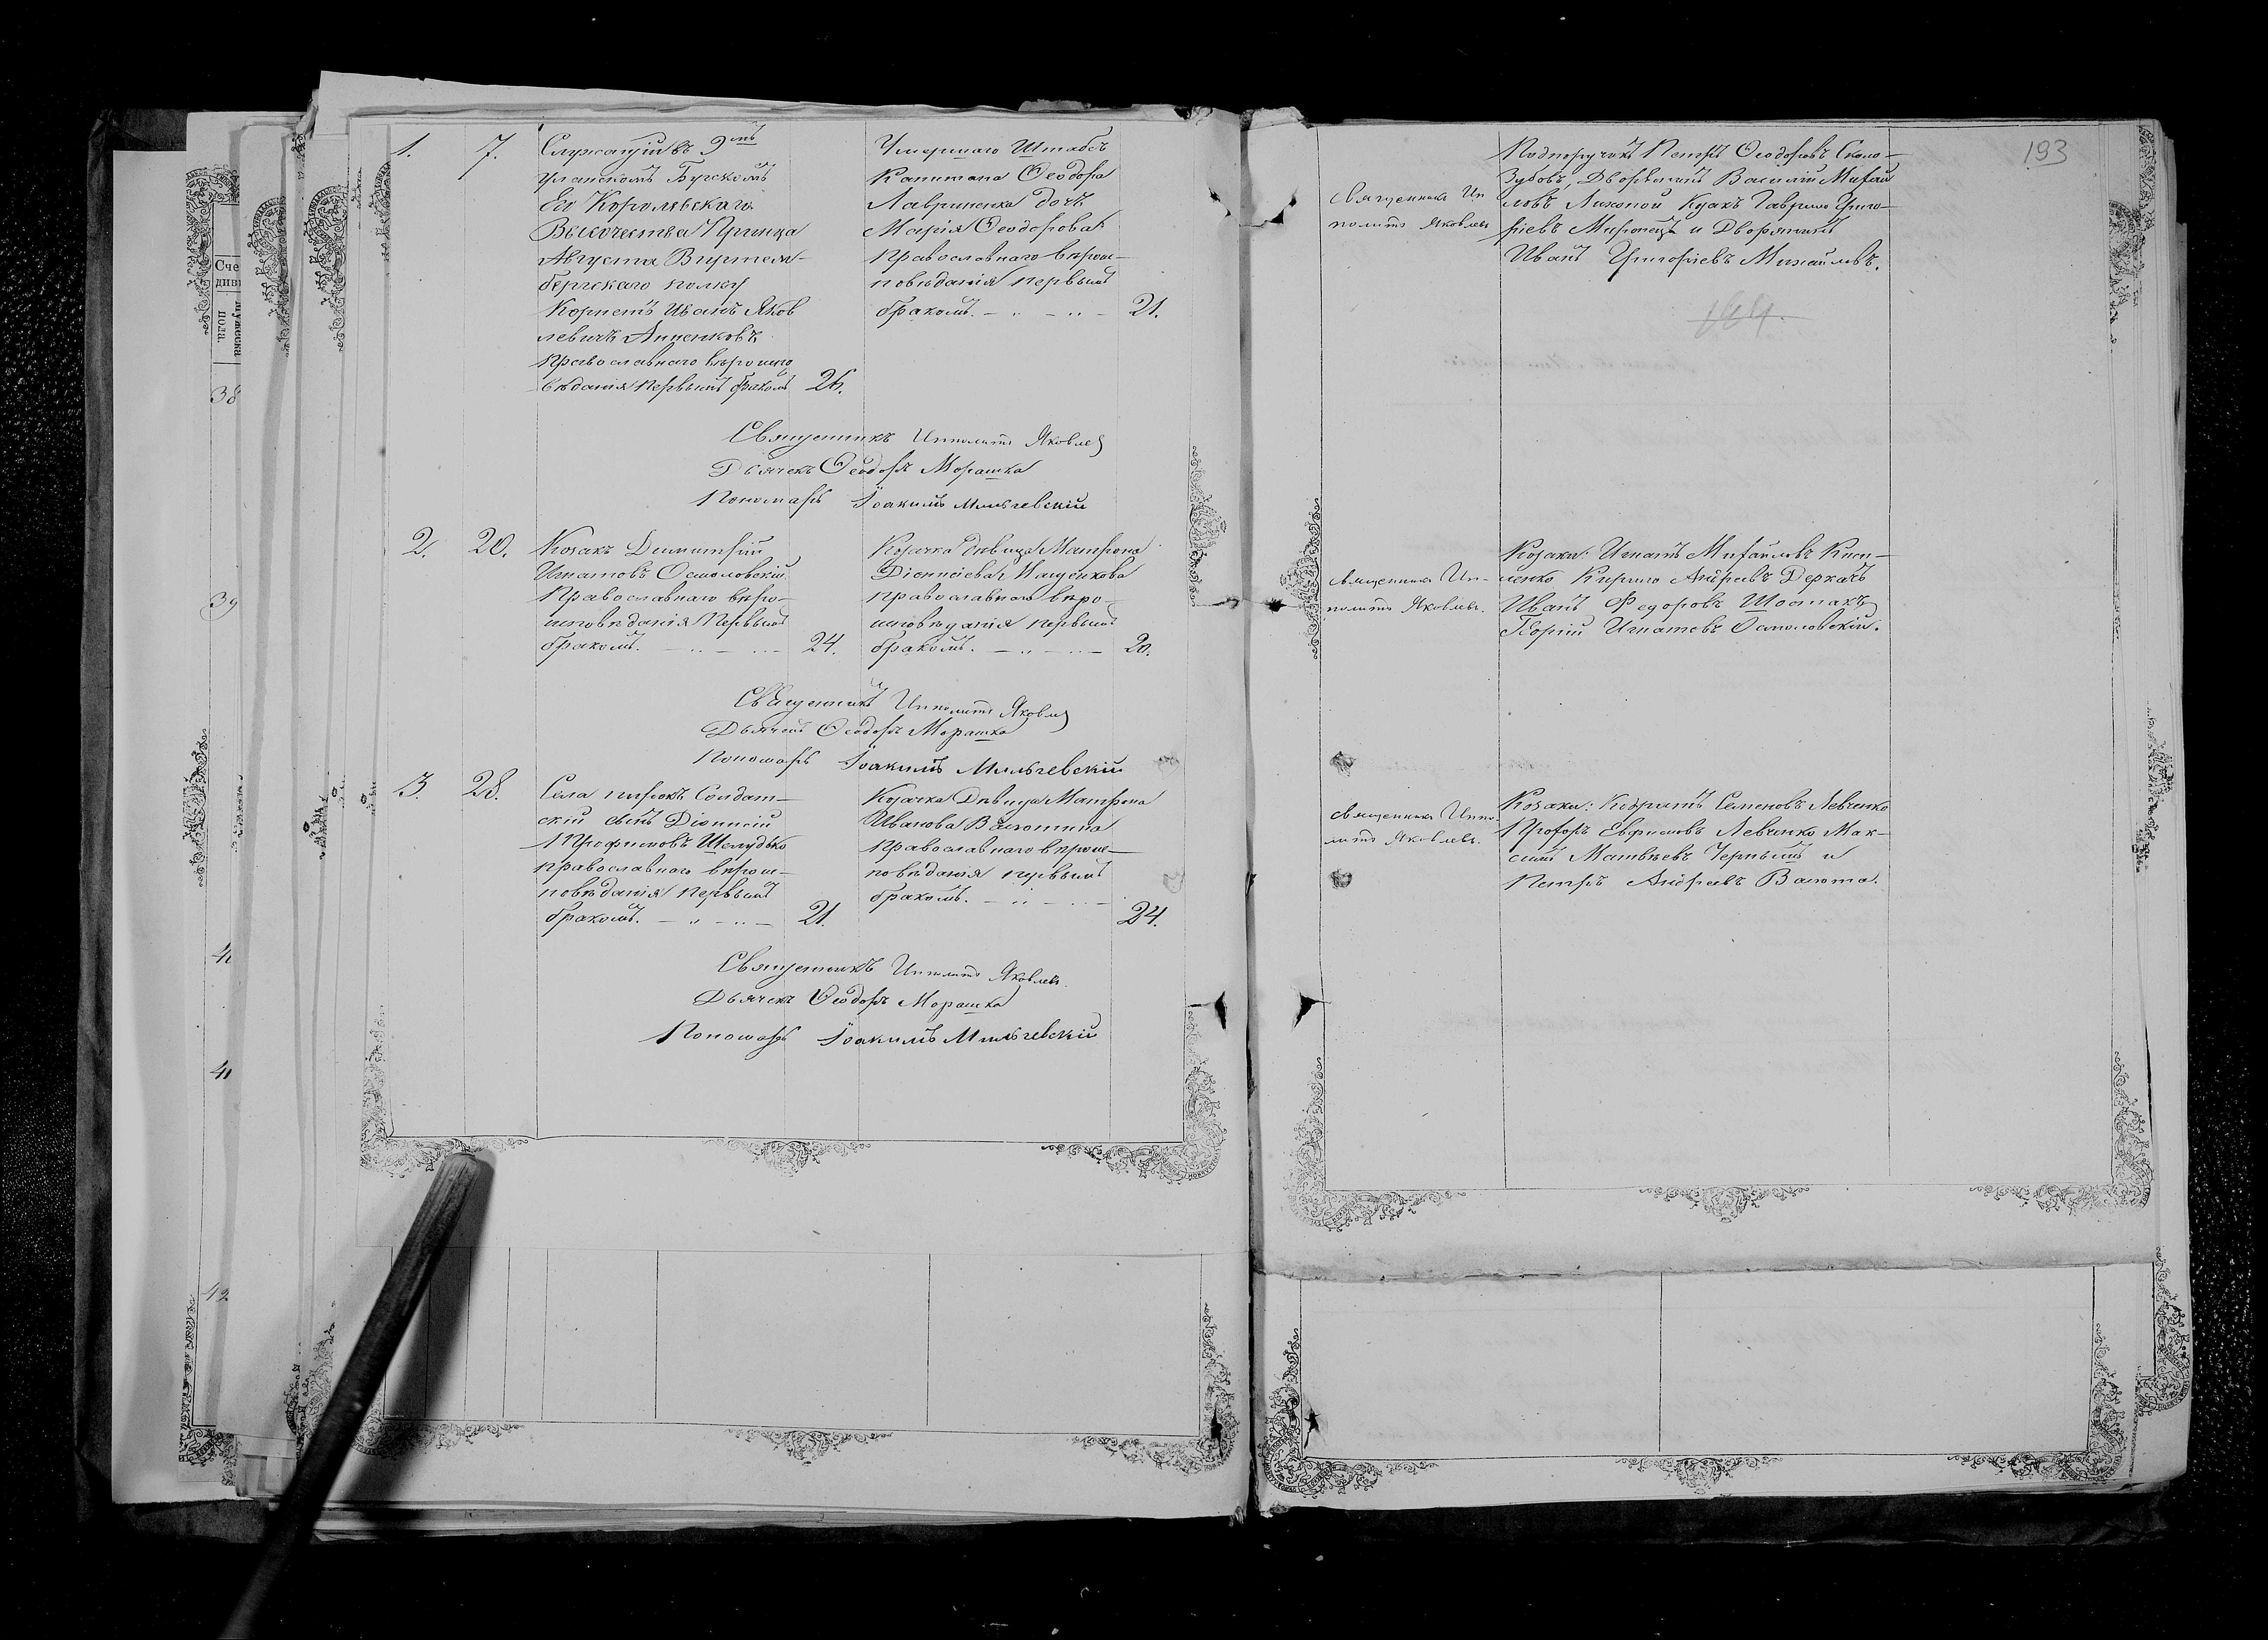 1. 7. Служащій въ 9мъ
Уланскомъ Бугскомъ
Его Королевскаго
Высочества Принца
Августа Виртем-
бергскаго полку
Корнетъ Иванъ Яков
левичъ Анненковъ
православнаго вѣроиспо
вѣданія первымъ бракомъ 26.
Умершаго Штабсъ
Капитана Ѳеодора
Лавриненка дочь
Марія Ѳеодорова
православнаго вѣрои-
повѣданія первымъ
бракомъ. 21.
Священникъ Ипполитъ Яковлев
Дьячекъ ѲеодоръМорашко
Пономарь Іоакимъ Мильчевскій
2. 20. Козакъ Димитрій
Игнатовъ Осмоловскій
Православнаго вѣро-
исповѣданія Первымъ
бракомъ. 24.
Козачка дѣвица Матрона
Діонисіева
православнаго вѣро-
исповѣданія первымъ
бракомъ. 20.
Священникъ Ипполитъ Яковлев
Дьячекъ Ѳеодоръ Морашко
Пономарь Іоакимъ Мильчевскій
3. 28. Села Солдат-
скій сынъ Діонисій
Трофимовъ Шелудько
православнаго вѣрои-
повѣданія первымъ
бракомъ. 21.
Козачка Дѣвица Матрона
Иванова
православнаго вѣрои-
повѣданія первымъ
бракомъ.
24.
Священникъ Ипполитъ Яковлев
Дьячекъ Ѳеодоръ Морашко
Пономарь Іоакимъ Мильчевскій
Сче
див
мужеска
пола.
38
39
42
193
Священникъ Ип
политъ Яковлевъ
Подпоручикъ Петръ Ѳеодоровъ Скало-
Зубовъ, Дворянинъ Василій Михай
ловъ Гаврило Григо-
ріевъ и Дворянинъ
Иванъ Григоріевъ Михайловъ.
Священникъ Ип-
политъ Яковлевъ.
Козаки: Игнатъ Михайловъ Кири-
ленко Кирило Андреевъ Деркачъ
Иванъ Федоровъ Шостакъ
Георгій Игнатовъ Осмоловскій.
Священникъ Иппо
литъ Яковлевъ.
Козаки: Кодратъ Семеновъ Левченко
Прохоръ Евфимовъ Левченко Мак-
симъ Матвѣевъ Черныш и
Петръ Андреевъ Валюта.